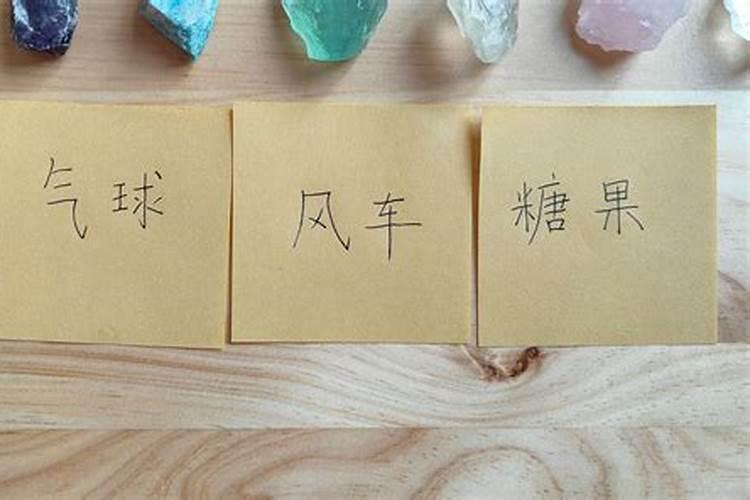 气球 风车 糖果